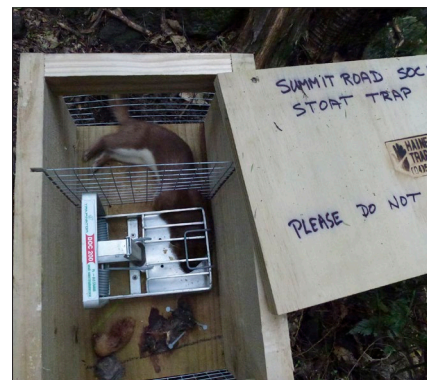 SUMMIT ROAD SOC
STOAT TRAP
HAINE
TRA
PLEASE DO NOT
DOC 200